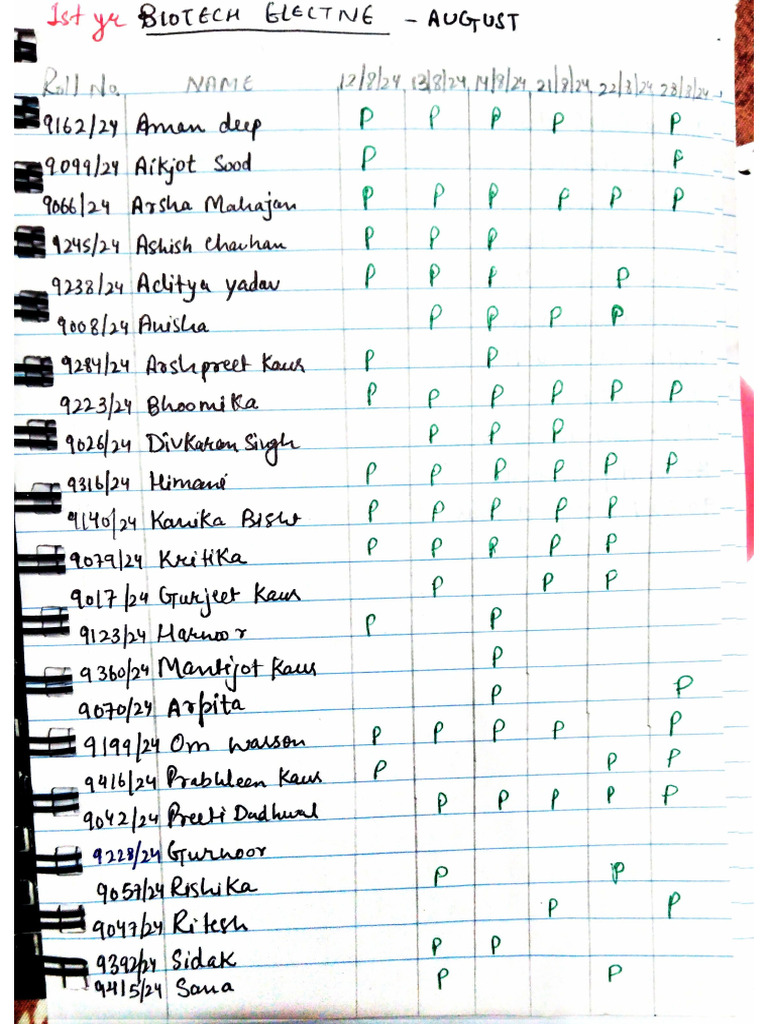 1st yr BIOTECH ELECTIVE - AUGUST
Roll No. NAME 12/8/24 13/8/24 14/8/24 21/8/24 22/8/24 28/8/24
9162/24 Aman deep P P P P P
9099/24 Aikjot Sood P P
9066/24 Arsha Mahajan P P P P P P
9245/24 Ashish Chauhan P P P
9238/24 Aditya yadav P P P P
9008/24 Anisha P P P P
9284/24 Arshpreet Kaur P P
9223/24 Bhoomika P P P P P P
9026/24 Divkaran Singh P P P
9316/24 Himani P P P P P P
9140/24 Kanika Bisht P P P P P
9079/24 Kritika P P P P P
9017/24 Gurjeet Kaur P P P
9123/24 Harnoor P P
9360/24 Mantijot Kaur P
9070/24 Arpita P P
9199/24 Om Wasson P P P P P
9416/24 Prabhleen Kaur P P P
9042/24 Preeti Dadhwal P P P P P
9228/24 Gurnoor
9057/24 Rishika P P
9047/24 Ritesh P P
9392/24 Sidak P P
9415/24 Sana P P